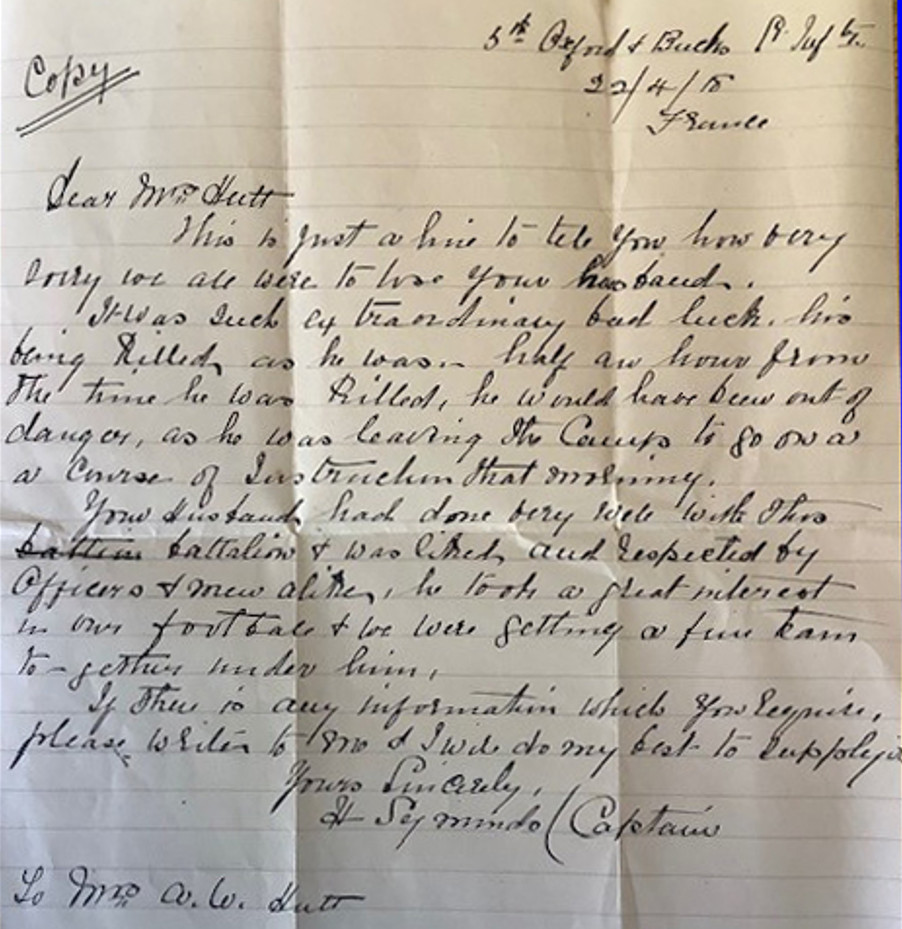 5th Oxford & Bucks Lt Inf ty.
Copy
22/4/18
France
Dear Mrs Hutt
This is just a line to tell you how very
sorry we all were to lose your husband.
It was such extraordinary bad luck. his
being Killed, as he was. half an hour from
the time he was Killed, he would have been out of
danger, as he was leaving the Camp to go on a
a Course of Instruction that morning.
Your Husband had done very well with this
battion battalion & was liked, and respected by
Officers & men alike, he took a great interest
in our football & we were getting a fine team
to-gether under him,
If there is any information which you require,
please write to me & I will do my best to supply
Yours Sincerely,
H (Captain
To Mrs W. Hutt